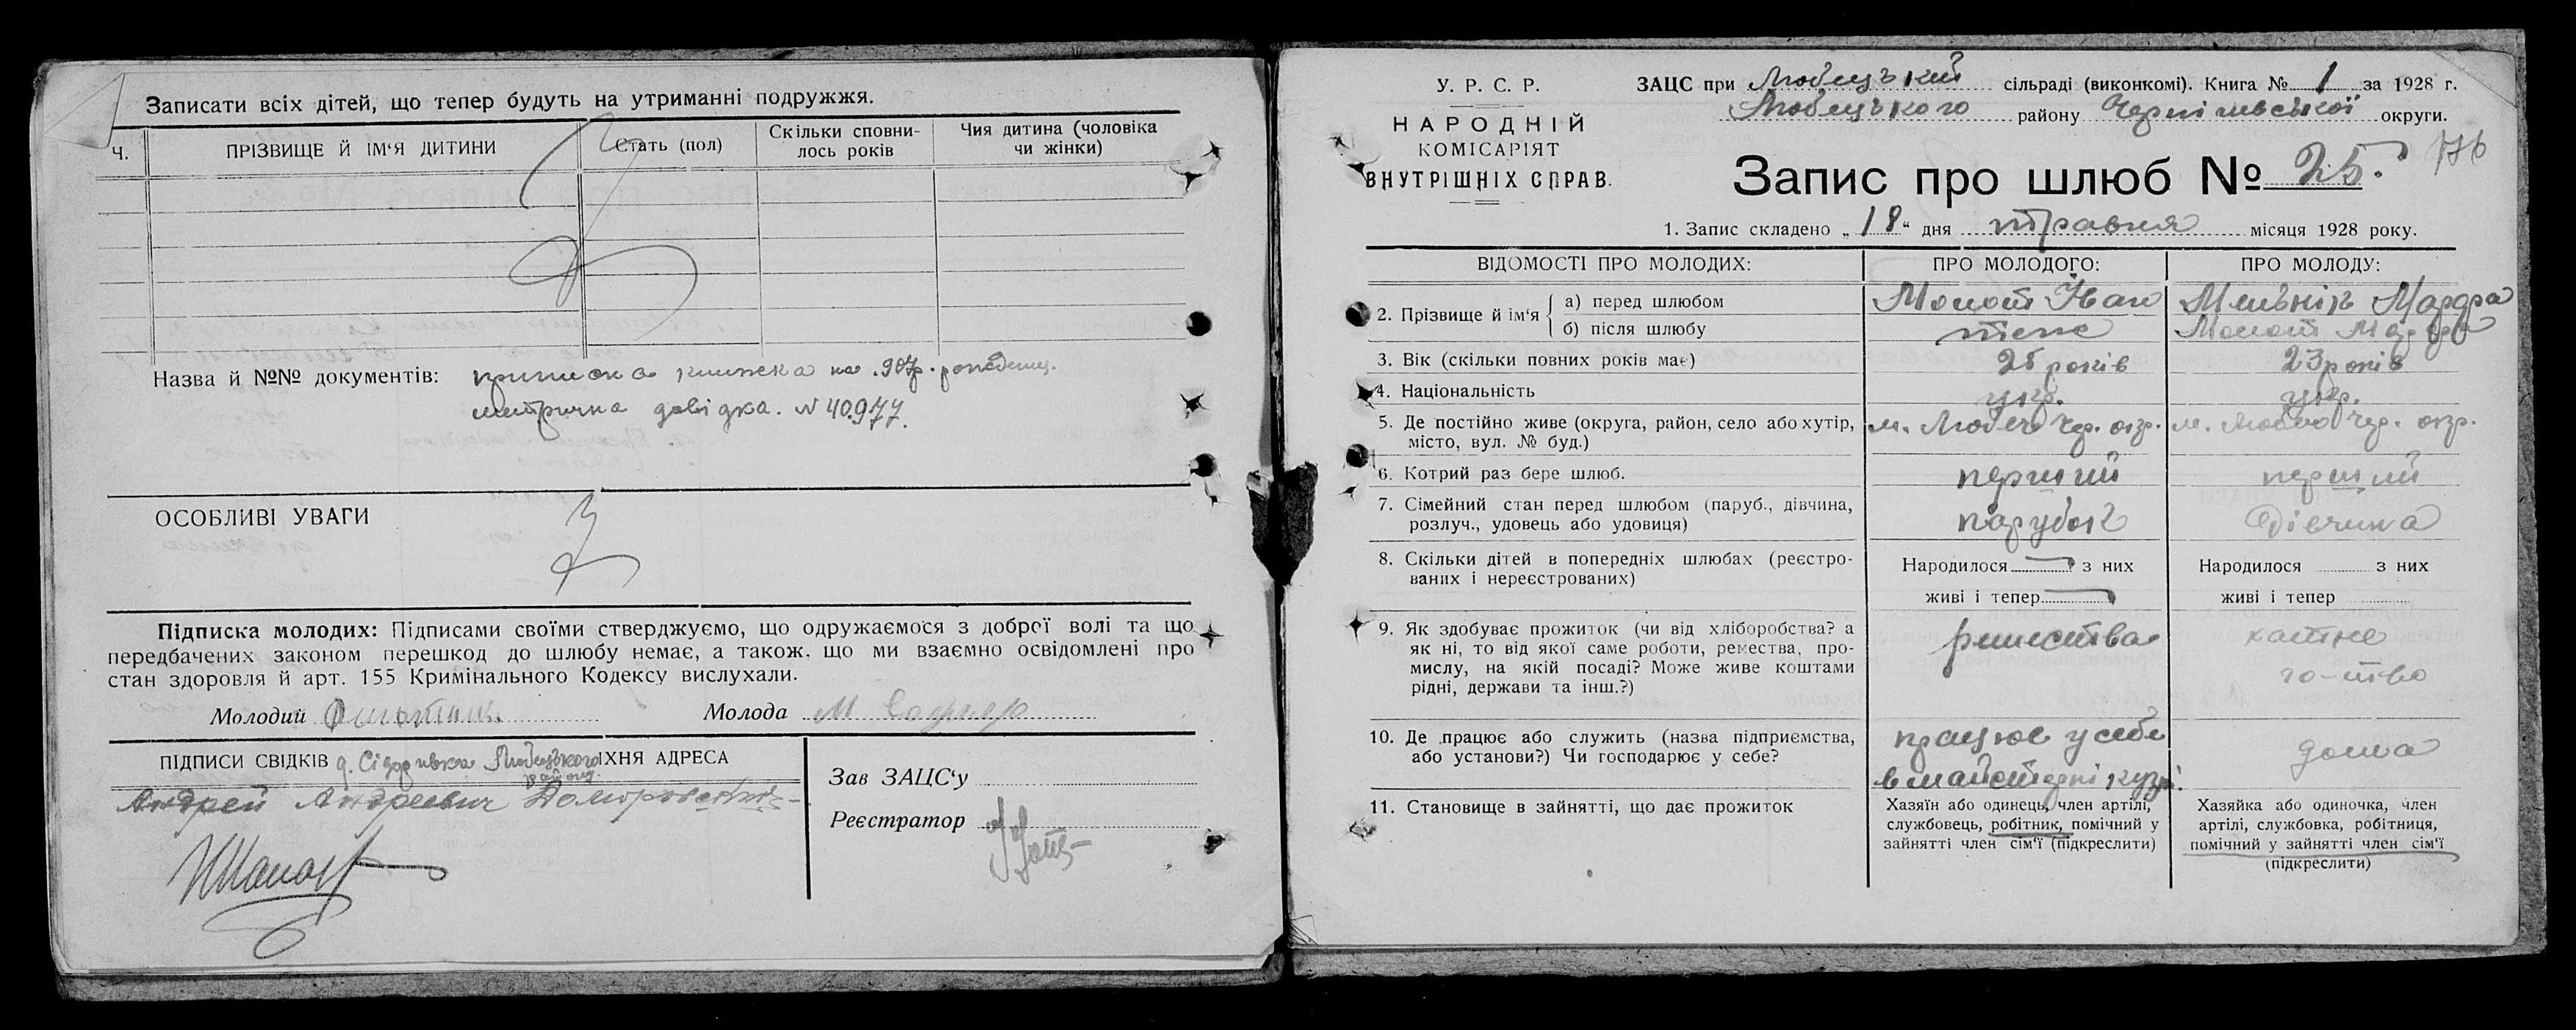 Записати всіх дітей, що тепер будуть на утриманні подружжя.
Ч.
ПРІЗВИЩЕ Й ІМ'Я ДИТИНИ
Стать (пол)
Скільки сповни-
лось років
Чия дитина (чоловіка
чи жінки)
Назва й №№ документів: книжка на 907р.
метрична довідка. № 40977.
ОСОБЛИВІ УВАГИ
Підписка молодих: Підписами своїми стверджуємо, що одружаємося з доброї волі та що
передбачених законом перешкод до шлюбу немає, а також, що ми взаємно освідомлені про
стан здоровля й арт. 155 Кримінального Кодексу вислухали.
Молодий
Молода
ПІДПИСИ СВІДКІВ Любецького ЇХНЯ АДРЕСА
району
Андрей Андреевич
Зав ЗАЦС'у
Реєстратор
У. Р. С. Р.
НАРОДНІЙ
КОМІСАРІЯТ
ВНУТРІШНІХ СПРАВ.
ЗАЦС при Любецькій сільраді (виконкомі). Книга № 1 за 1928 г.
Любецького району Чернігівської округи.
Запис про шлюб № 25.
1. Запис складено „18“ дня травня місяця 1928 року.
ВІДОМОСТІ ПРО МОЛОДИХ:
ПРО МОЛОДОГО:
ПРО МОЛОДУ:
2. Прізвище й ім'я
а) перед шлюбом
Іван
б) після шлюбу
теж
3. Вік (скільки повних років має)
25 років
23 років
4. Національність
укр.
укр.
5. Де постійно живе (округа, район, село або хутір,
місто, вул. № буд.)
м. Любеч Чер. окр.
м. Любеч Чер. окр.
6. Котрий раз бере шлюб.
перший
перший
7. Сімейний стан перед шлюбом (паруб., дівчина,
розлуч., удовець або удовиця)
парубок
дівчина
8. Скільки дітей в попередніх шлюбах (реєстро-
ваних і нереєстрованих)
Народилося з них
живі і тепер
Народилося з них
живі і тепер
9. Як здобуває прожиток (чи від хліборобства? а
як ні, то від якої саме роботи, ремества, про-
мислу, на якій посаді? Може живе коштами
рідні, держави та інш.?)
хатнє
го-ство
10. Де працює або служить (назва підприємства,
або установи?) Чи господарює у себе?
працює у себе
в майстерні
дома
11. Становище в зайнятті, що дає прожиток
Хазяїн або одинець, член артілі,
службовець, робітник, помічний у
зайнятті член сім'ї (підкреслити)
Хазяйка або одиночка, член
артілі, службовка, робітниця,
помічний у зайнятті член сім'ї
(підкреслити)